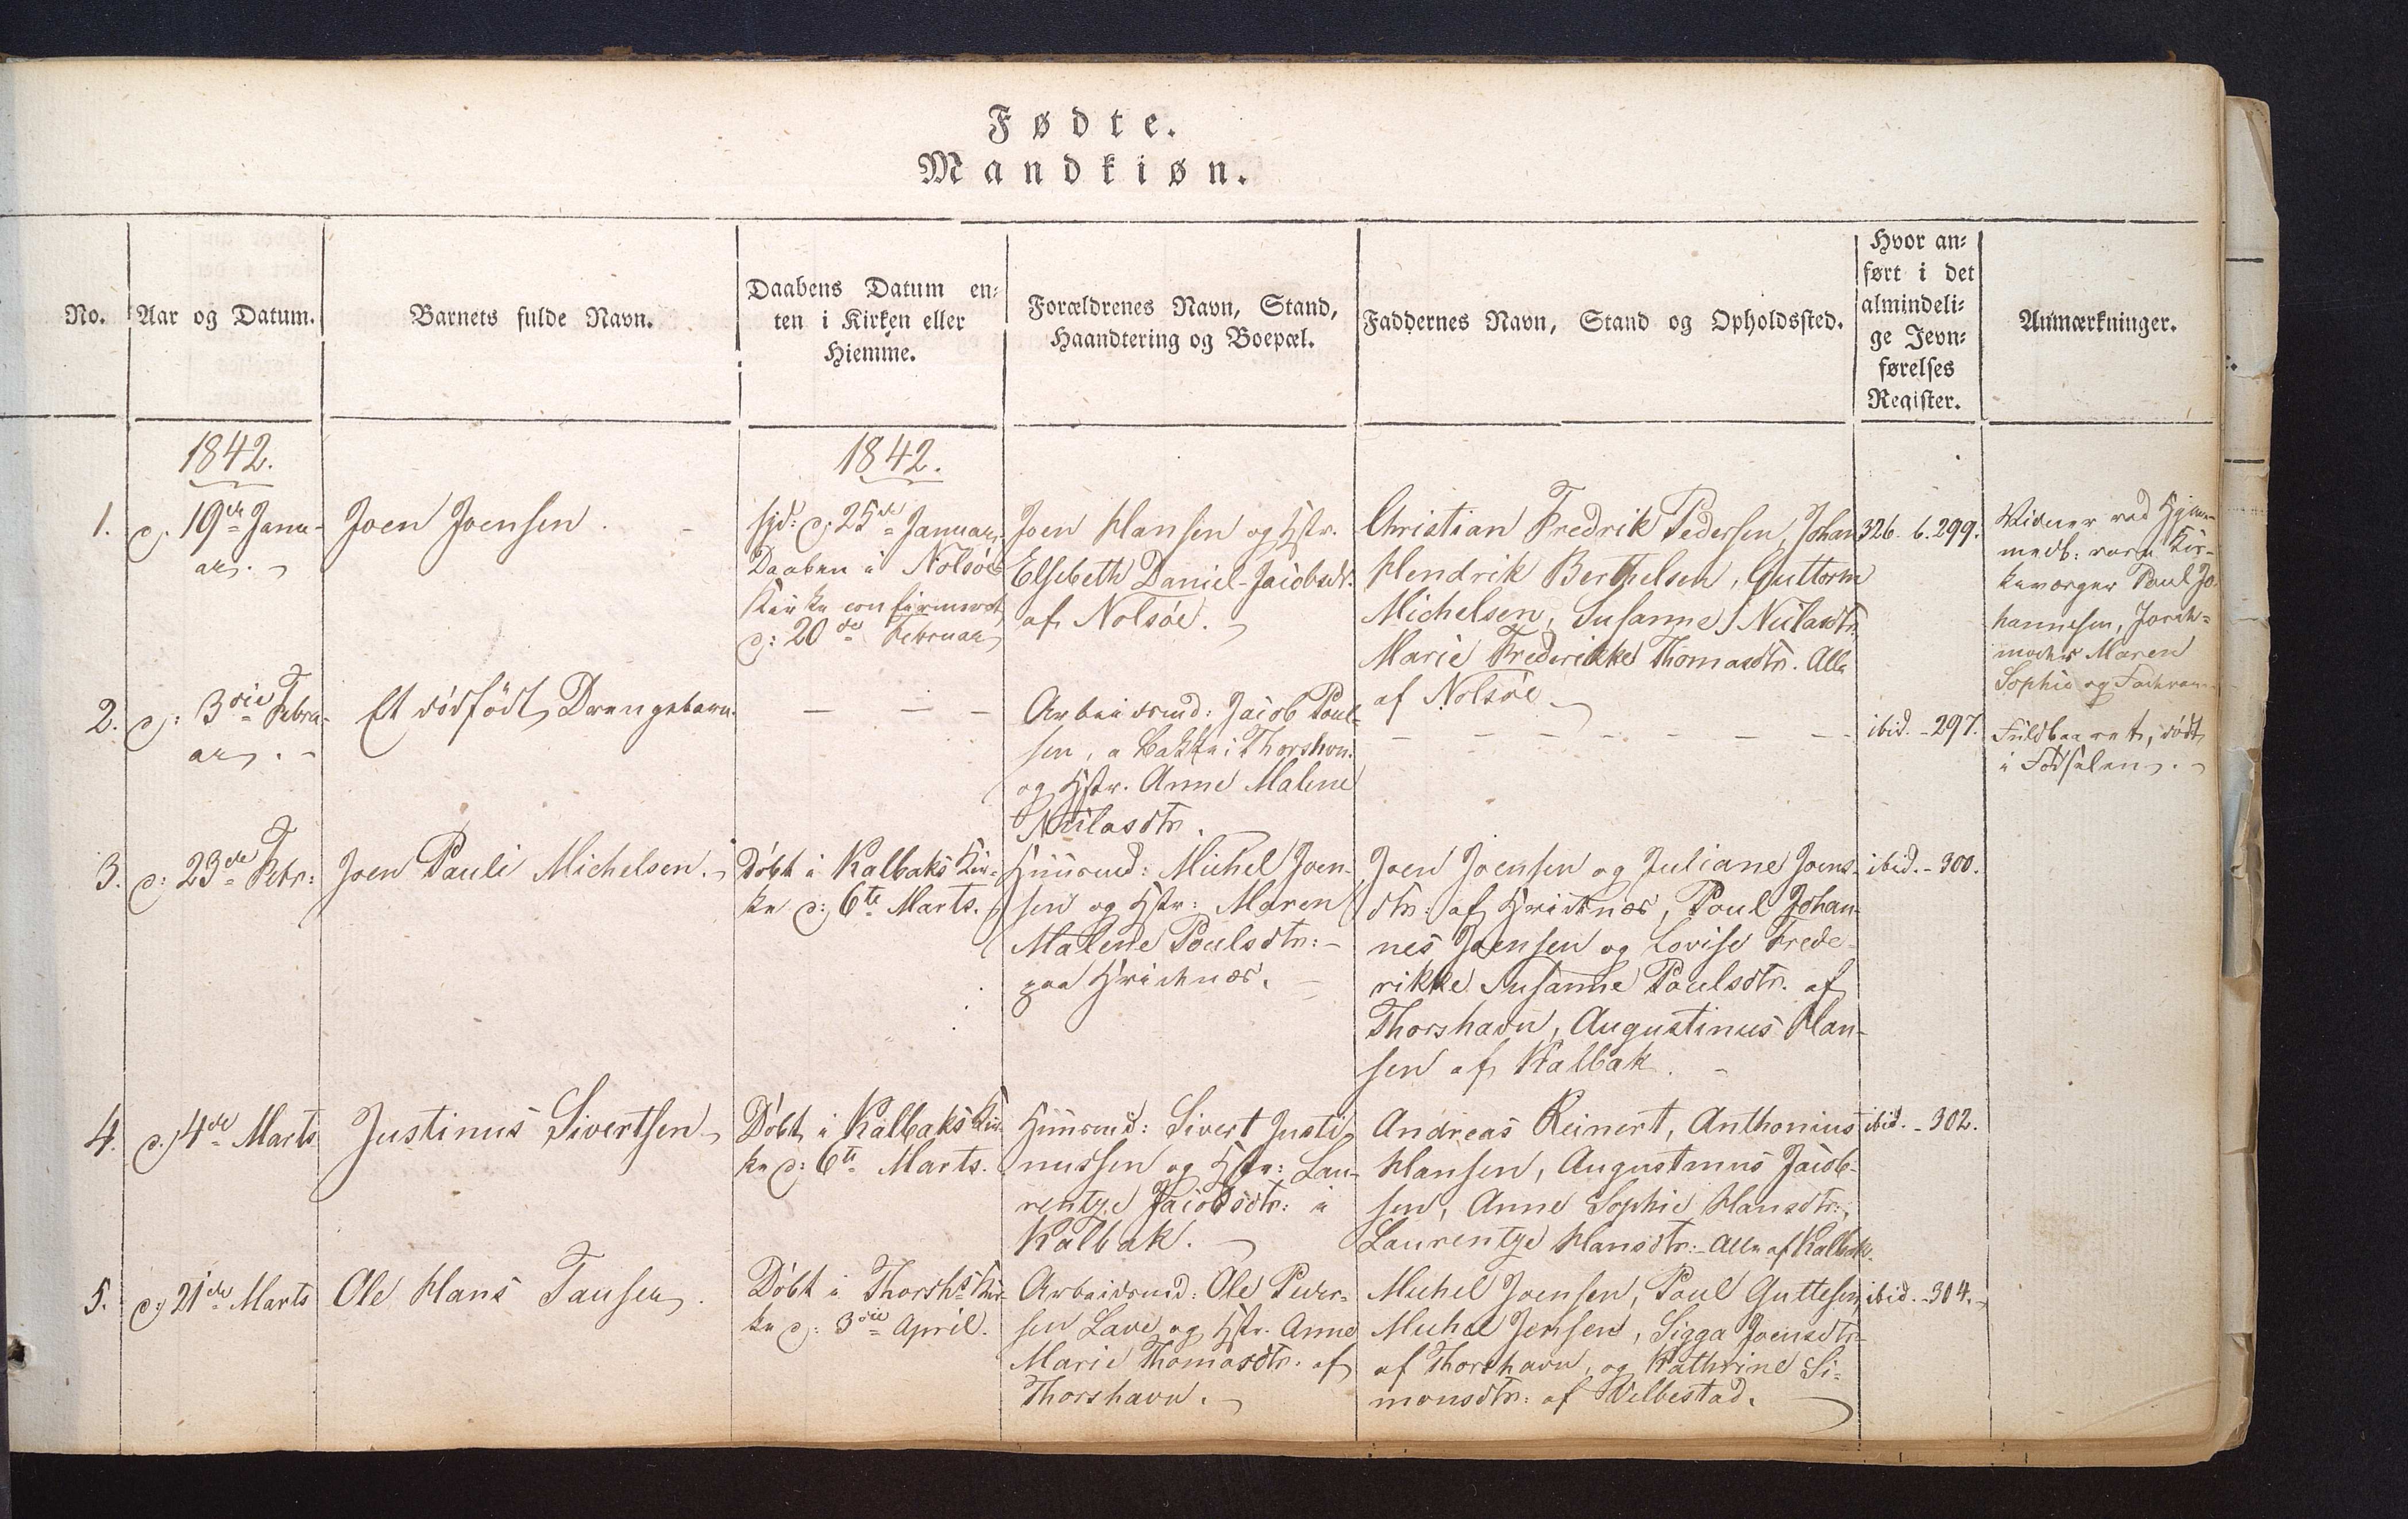 Fødte.
Mandkiøn.
No.
Aar og Datum.
Barnets fulde Navn.
Daabens Datum en-
ten i Kirken eller
Hiemme.
Forældrenes Navn, Stand,
Haandtering og Boepæl.
Faddernes Navn, Stand og Opholdssted.
Hvor an-
ført i det
almindeli-
ge Jevn-
førelses
Register.
Anmærkninger.
1842.
1842.
1.
d. 19de Janu-
ar.
Joen Joensen.
hjd: d: 25de Januar,
Daaben i Nolsöe
Kirke confirmeret
d: 20de Februar
Joen Hansen og Hstr.
Elsebeth Daniel-Jacobsdt.
af Nolsöe.
Christian Fredrik Pedersen, Johan
Hendrik Berthelsen, Guttorm
Michelsen, Susanne J Nielasdtr.
Marie Frederikke Thomasdtr. Alle
af Nolsöe.
326. b. 299.
Vidner ved Hjem-
medb: vare Kir-
keværger Paul Jo-
hannesen, Jorde-
moder Maren
Sophie og Faderen
2.
d: 3die Febru-
ar.
Et dödfödt Drengebarn.
Arbeidsmd: Jacob Poul-
sen, a Bakka i Thorshavn
og Hstr. Anne Malene
Nielasdtr.
ibid. - 297.
Fuldbaaret, död
i Födselen.
3.
d: 23de Febr:
Joen Pauli Michelsen.
Döbt i Kalbaks Kir-
ke d: 6te Marts.
Huusmd: Michel Joen-
sen og Hstr: Maren
Malene Poulsdtr:
paa Hvidenæs.
Joen Joensen og Juliane Joens-
dtr: af Hvidenæs, Poul Johan-
nes Joensen og Lovise Frede-
rikke Susanne Poulsdtr. af
Thorshavn, Augustinus Han-
sen af Kalbak.
ibid. - 300.
4.
d. 4de Marts
Justinus Sivertsen
Döbt i Kalbaks Kir-
ke d: 6te Marts.
Huusmd: Sivert Justi-
nussen og Hstr: Lau-
rentze Jacobsdtr: i
Kalbak.
Andreas Reinert, Anthonius
Hansen, Augustinus Jacob-
sen, Anne Sophie Hansdtr:,
Laurentze Hansdtr: Alle af Kalbak.
ibid. - 302.
5.
d: 21de Marts
Ole Hans Tausen.
Döbt i Thorsh:s Kir-
ke d: 3die April.
Arbeidsmd: Ole Peder-
sen Lave og Hstr. Anne
Marie Thomasdtr. af
Thorshavn.
Michel Joensen, Poul Guttesen,
Michel Jensen, Sigga Joensdtr
af Thorshavn, og Kathrine Si-
monsdtr: af Velbestad.
ibid. - 304.